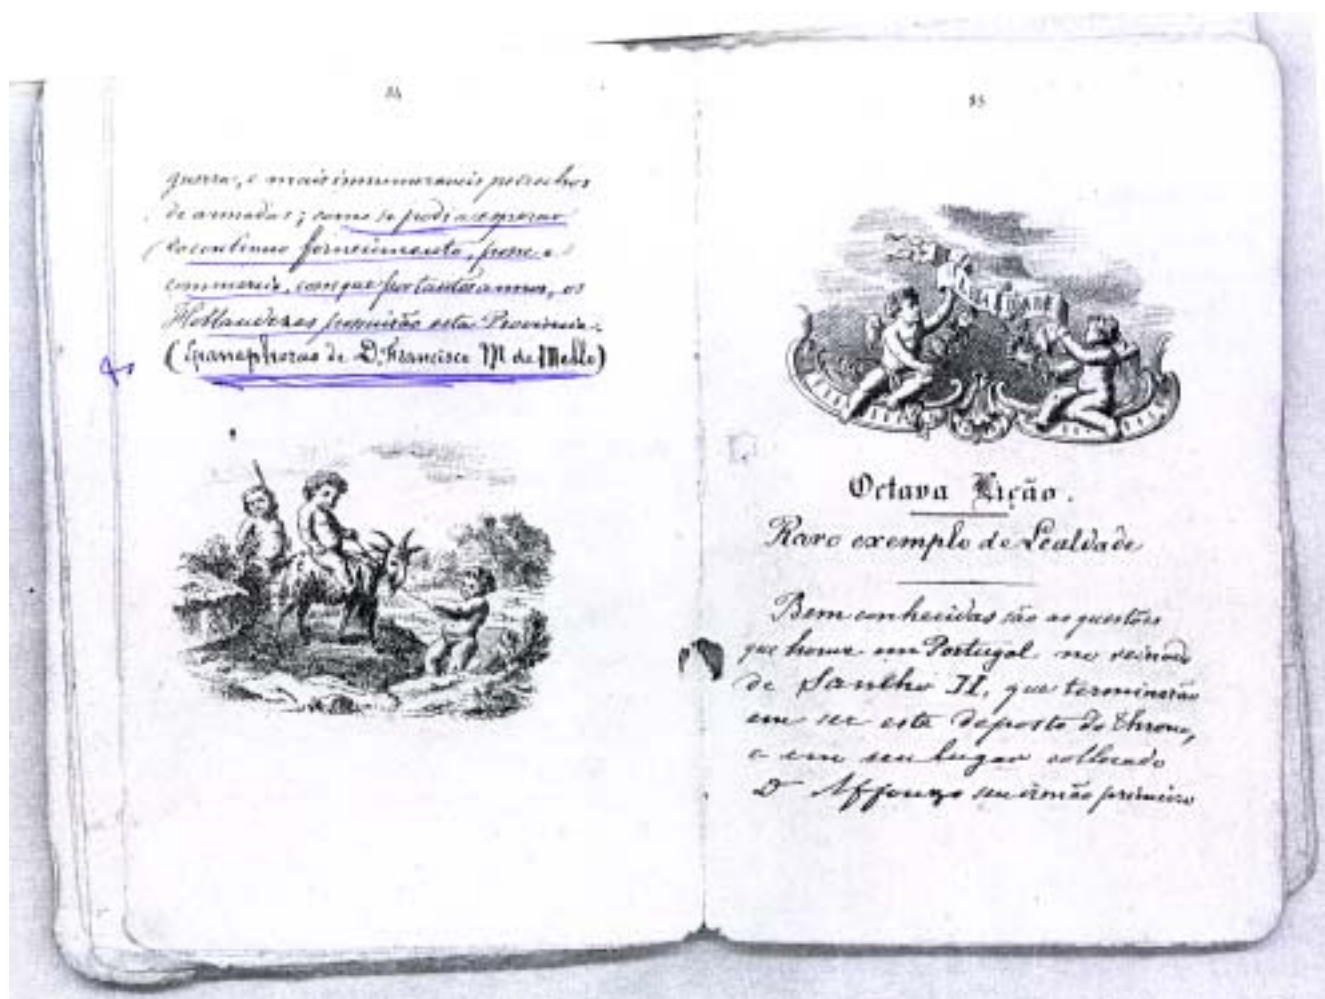 84
guerra, e mais innumeraveis petrechos
de armadas; como se podia esperar
do continuo fornecimento, posse e
commercio, com que por tantos annos, os
Hollandezes possuirão esta Provincia.
(Epanaphoras de D. Francisco M de Mello)
85
LEALDADE
Octava Lição.
Raro exemplo de Lealdade
Bem conhecidas são as questões
que houve em Portugal no reinado
de Sancho II, que terminarão
em ser este deposto do throno,
e em seu lugar collocado
Dr Affonzo seu irmão primeiro